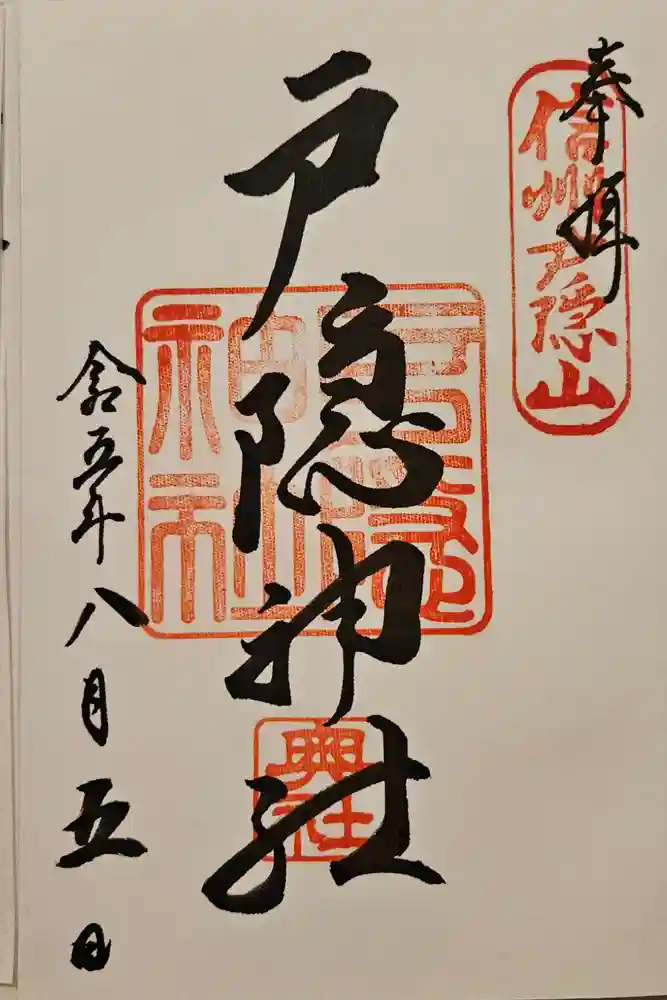 奉拝
信州戸隠山
戸隠神社
戸隠神社
奥社
令和五年八月五日